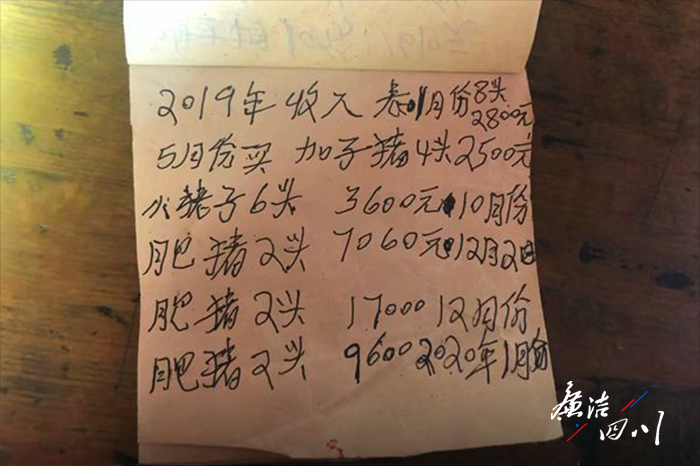 2019年 收入 1月份8头
2800元
5月份买 子猪4头2500元
小猪子6头 3600元 10月份
肥猪2头 7060元 12月2日
肥猪2头 17000 12月份
肥猪2头 9600 2020年1月份
廉洁
四川